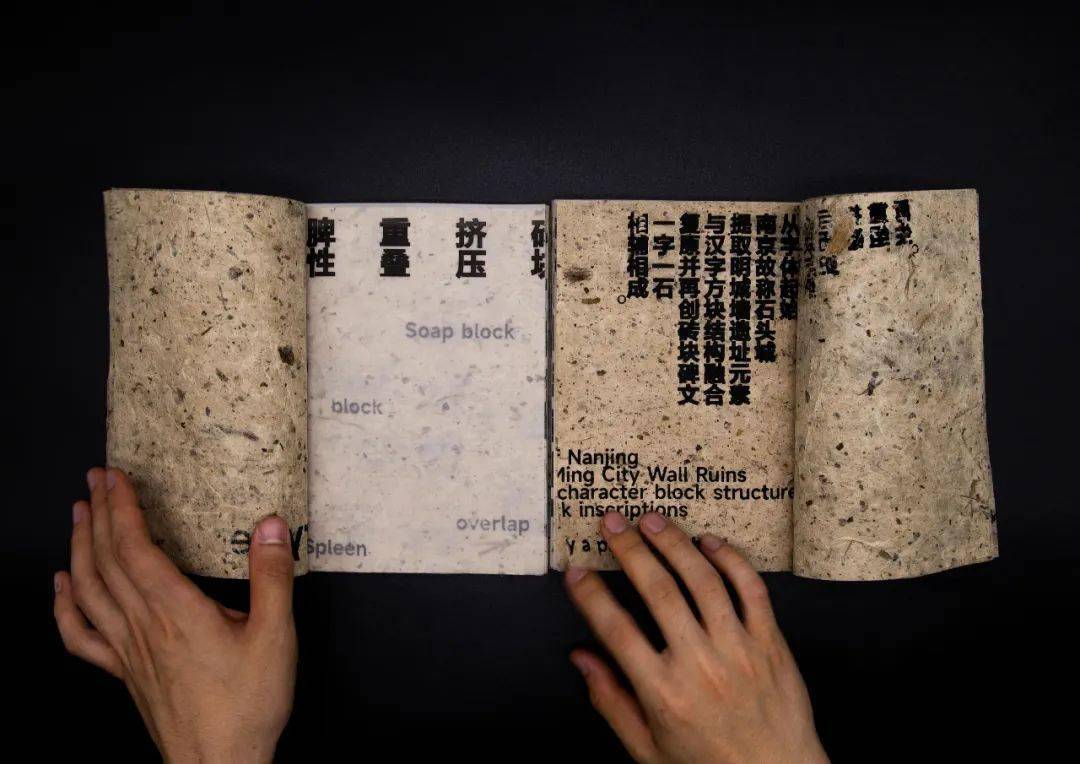 脾性
重叠
挤压
Soap block
block
overlap
Spleen
从字体起始
南京故称石头城
提取明城墙遗址元素
与汉字方块结构融合
复原并再创砖块碑文
一字一石
相辅相成。
Nanjing
Ming City Wall Ruins
character block structure
k inscriptions